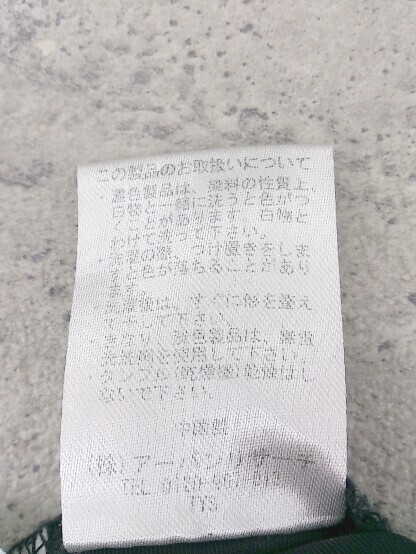 この製品のお取扱いについて
・濃色製品は、染料の性質上、
白物と一緒に洗うと色がつ
くことがあります。白物と
わけて洗って下さい。
・洗濯の際、つけ置きをしま
すと色が落ちることがあり
ます。
・洗濯後は、すぐに形を整え
て干して下さい。
・きなり、淡色製品は、無蛍
光洗剤を使用して下さい。
・タンブル(乾燥機)乾燥はし
ないで下さい。
中国製
(株)アーバンリサーチ
TEL